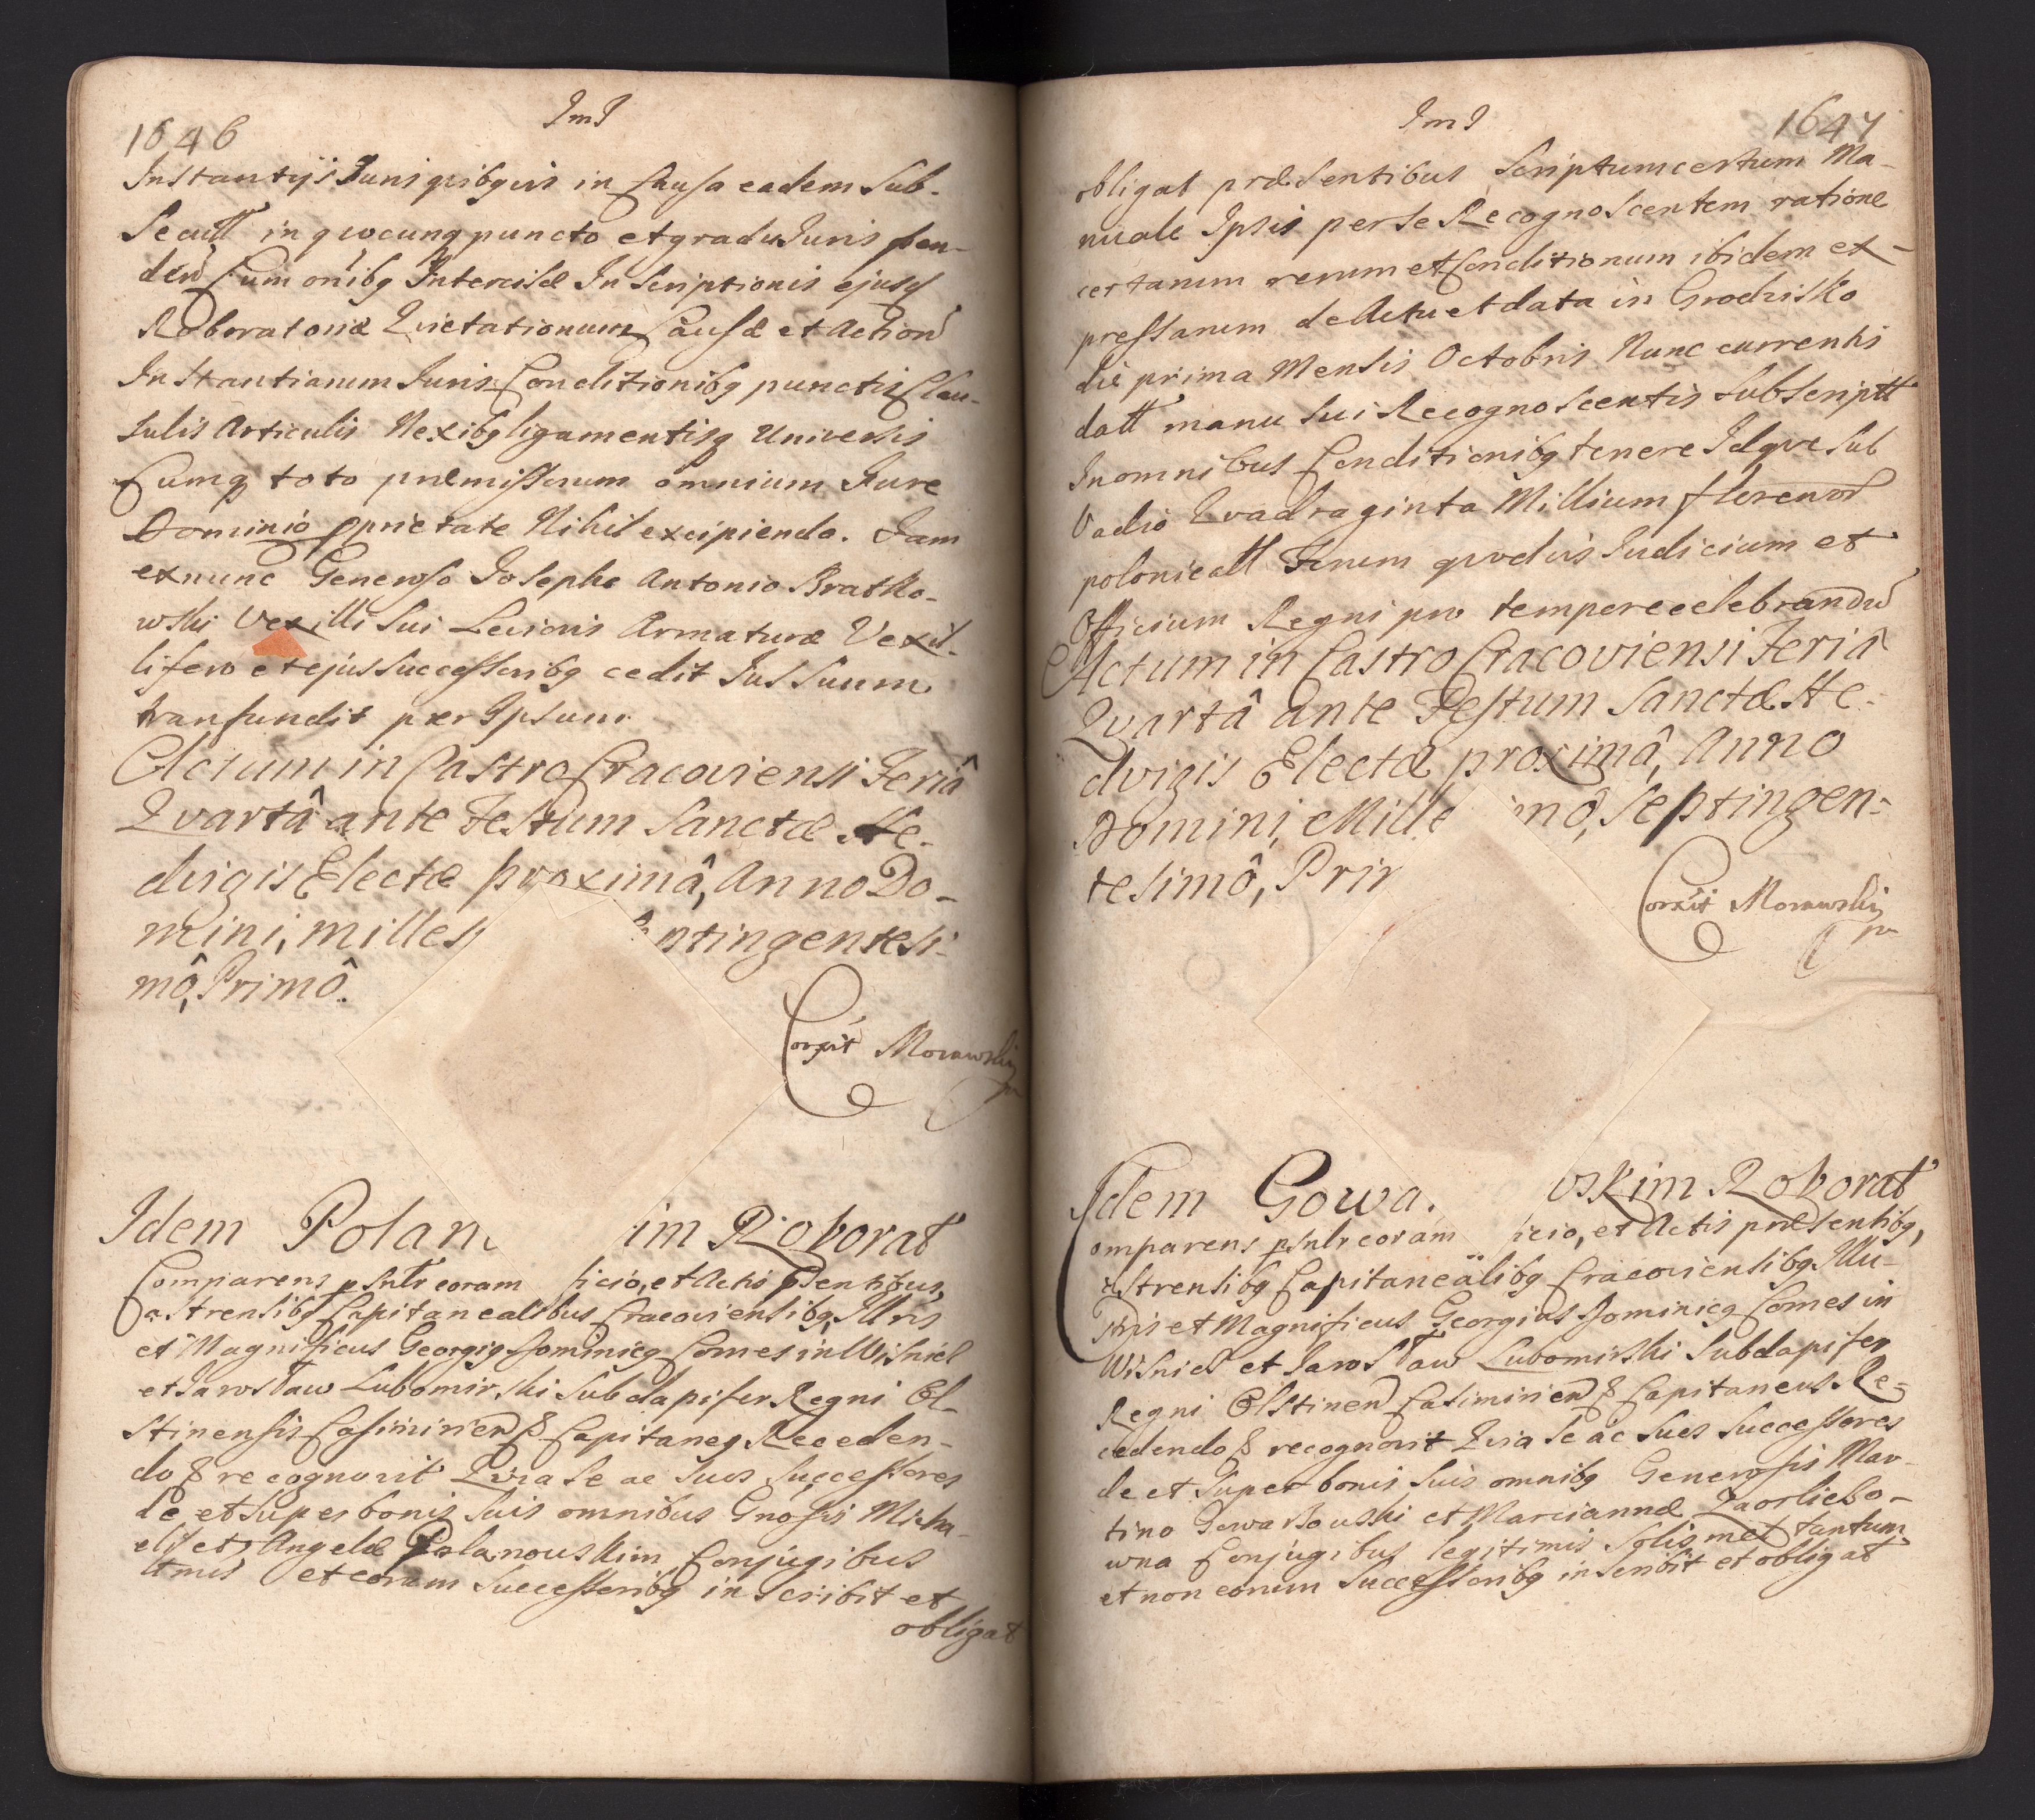 1646
ImI
Instantijs Juris quibqvis in Causa eadem Sub-
Secutt in qvocunq puncto et gradu Juris pen-
den Cum omibq Intercisæ Inscriptionis ejusq
Roboratoriæ Qvietationum Causæ et Action
Instantiarum Juris Conditionibq punctis Clau-
sulis Articulis Nexibq ligamentisq Universis
Cumq toto præmissorum omnium Jure
Dominio pprietate Nihil excipiendo. Jam
exnunc Generoso Josepho Antonio Bratko-
wski Vexilli Sui Levioris Armaturæ Vexil-
lifero et ejus Successoribq cedit Jus Suum
transfundit per Ipsum
Actum in Castro Cracoviensi Feriâ
Qvartâ ante Festum Sanctæ He-
dvigis Electæ proximâ, Anno Do-
mini, milles ptingentesi-
mô, Primô.
Corxit Morawski
Idem Polan im Roborat
Comparens psntr coram ficio, et Actis psentibus,
Castrensibq Capitanealibus Cracoviensibq, Illris
et Magnificus Georgiq Dominicq Comes in Wisnicz
et Jarosław Lubomirski Subdapifer Regni Ol-
stinensis Casimirien & Capitaneq Receden-
do & recognovit Qvia Se ac Suos Successores
de et Super bonis Suis omnibus Gnosis Micha-
eli et Angelæ Polanowskim Conjugibus
ltmis et eorum Successoribq inscribit et
obligat
ImI
1647
obligat præsentibus Scriptum certum Ma-
nuale Ipsis per Se Recognoscentem ratione
certarum rerum et Conditionum ibidem ex-
pressarum de Actu et data in Grodzisko
die prima Mensis Octobris Nunc currentis
datt manu Sui Recognoscentis Subscriptt
In omnibus Conditionibq tenere Idqve Sub
Vadio Qvadraginta Millium florenor
polonicall Forum qvodvis Judicium et
Officium Regni pro tempore celebrandu
Actum in Castro Cracoviensi Feriâ
Qvartâ ante Festum Sanctæ He-
dvigis Electæ proximâ, Anno
Domini, Mille mô, Septingen-
tesimô, Prir
Corxit Morawski
Idem Gowa. oskim Roborat
Comparens psntr coram icio, et Actis præsentibq,
Castrensibq Capitanealibq Cracoviensibq Illu-
stris et Magnificus Georgius Dominicq Comes in
Wisnicz et Jarosław Lubomirski Subdapifer
Regni Olstinen Casimirien & Capitaneus Re-
cedendo & recognovit Qvia Se ac Suos Successores
de et Super bonis Suis omnibq Generosis Mar-
tino Gowarkouski et Marciannæ Zaorliebo-
wna Conjugibus legitimis Solismet tantum
et non eorum Successoribq inscribit et obligat